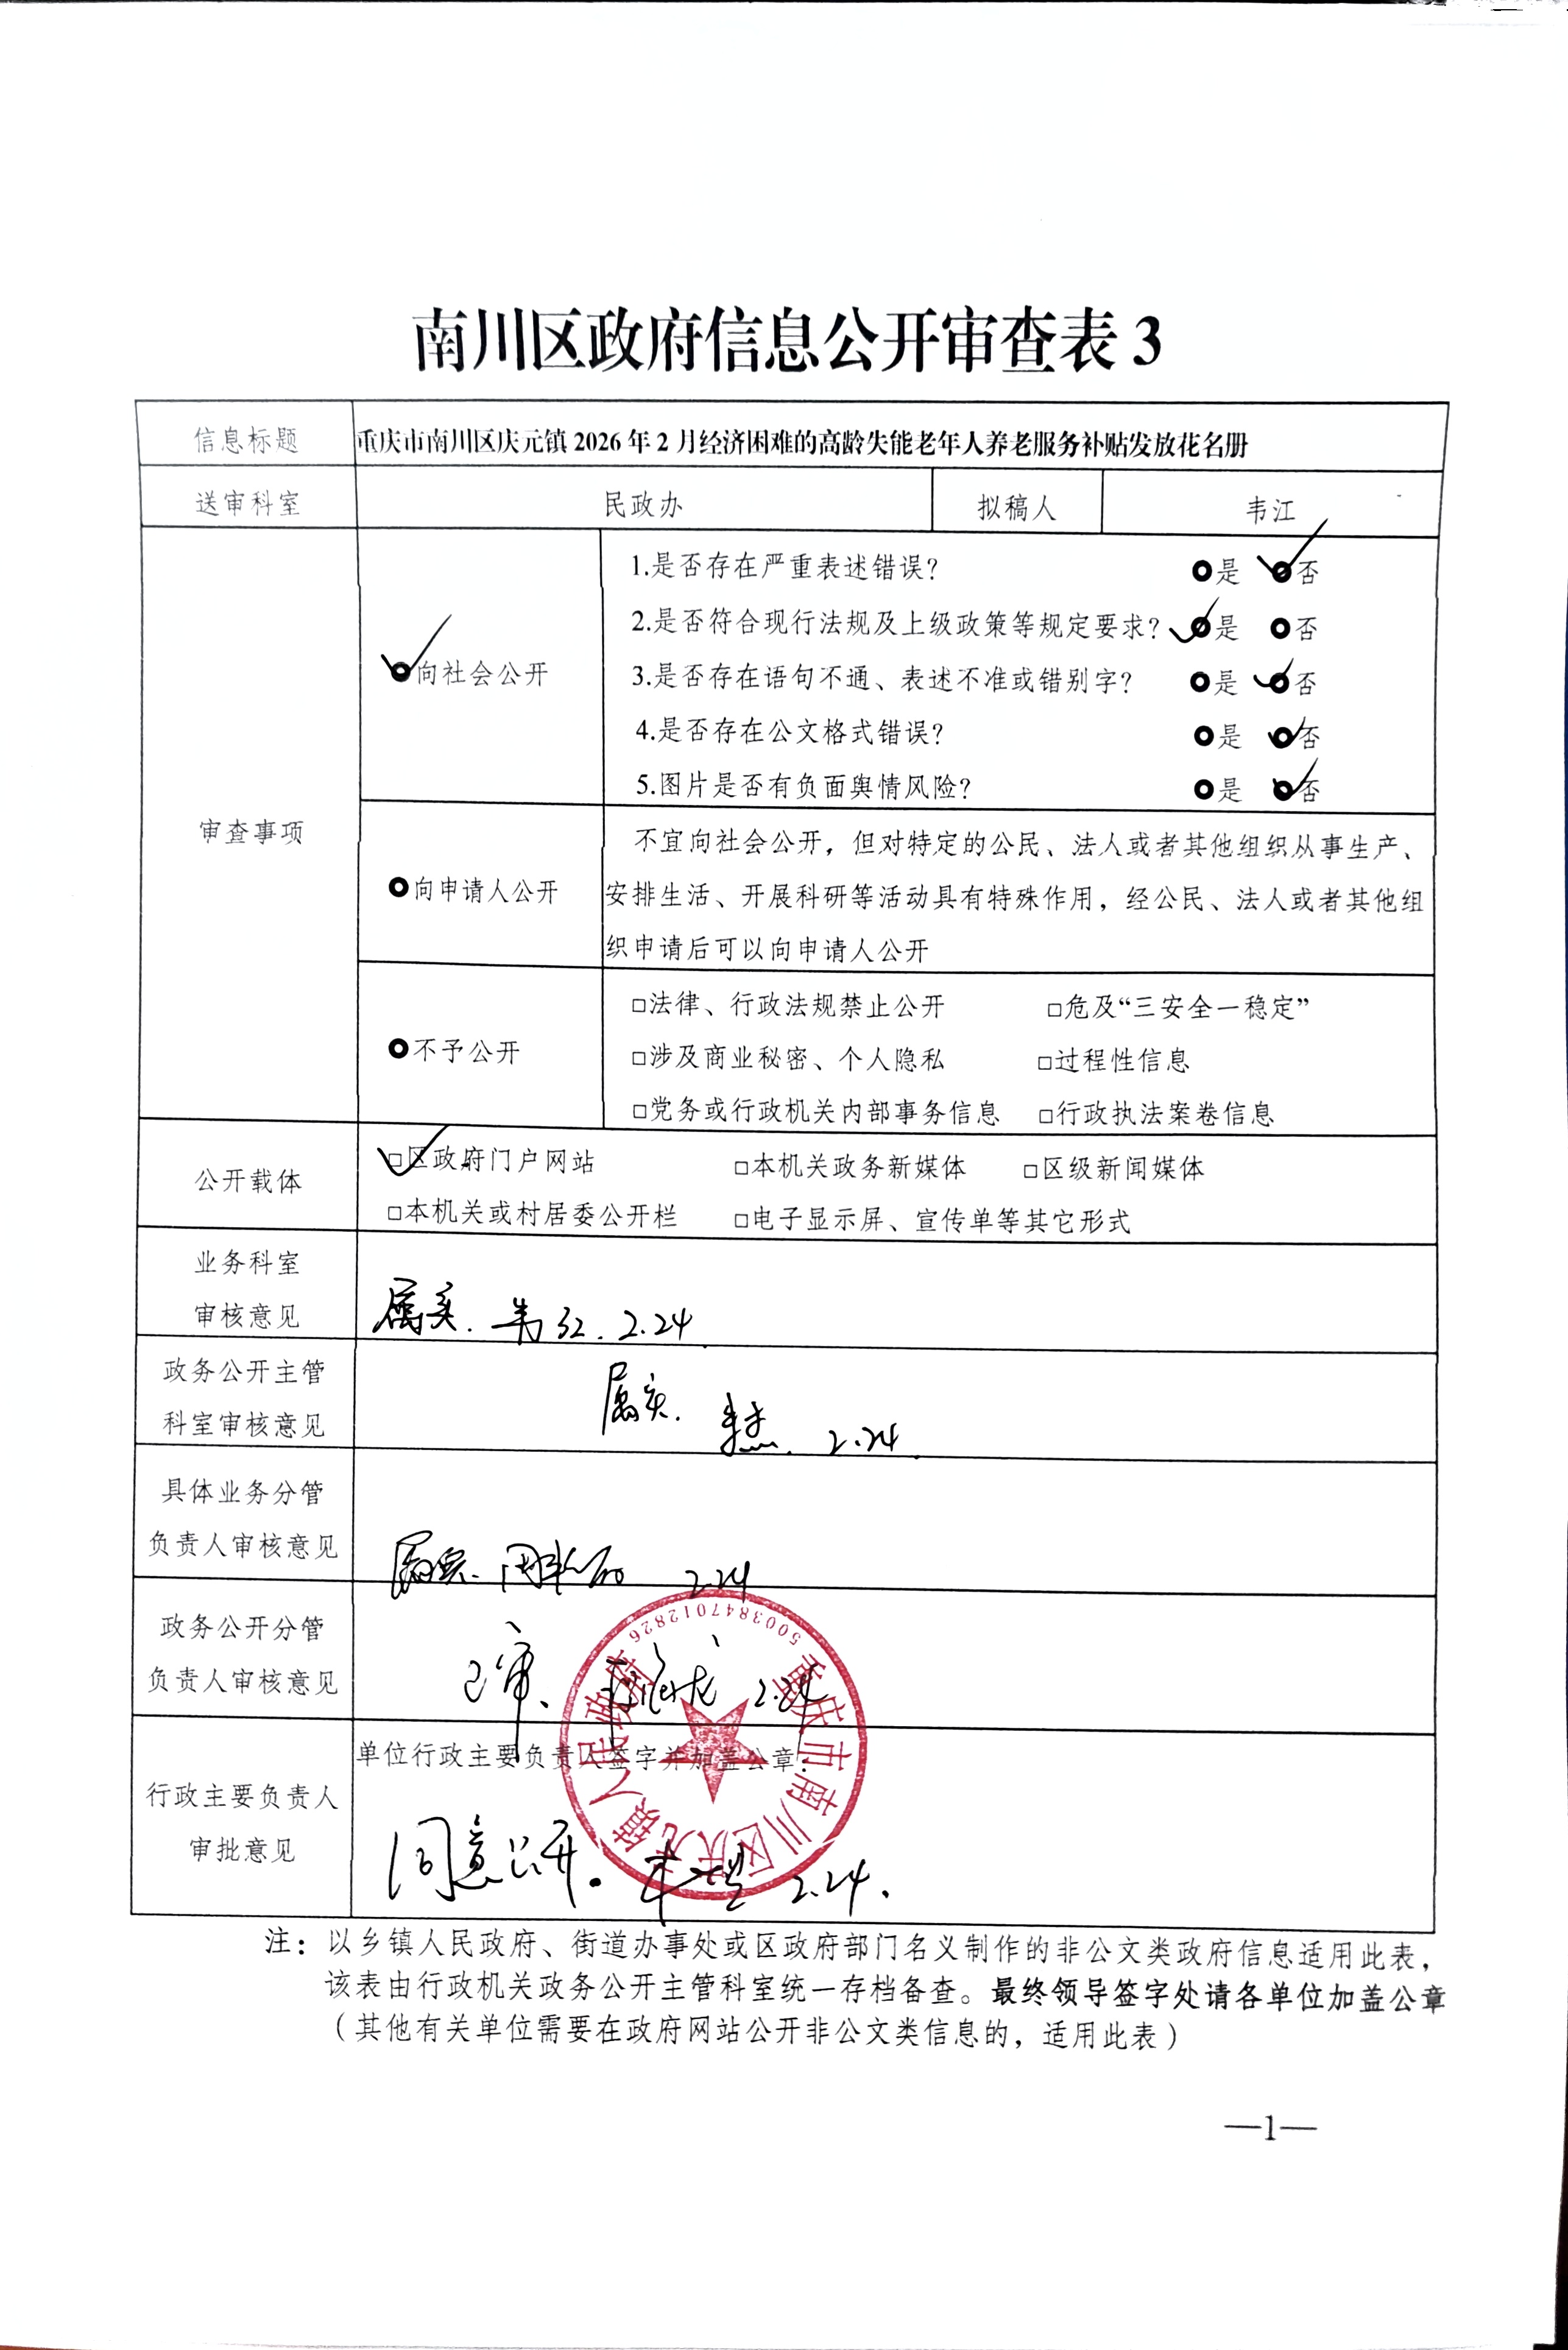 南川区政府信息公开审查表 3
信息标题 重庆市南川区庆元镇 2026 年 2 月经济困难的高龄失能老年人养老服务补贴发放花名册
送审科室 民政办 拟稿人 韦江
审查事项
向社会公开
1.是否存在严重表述错误? 是 否
2.是否符合现行法规及上级政策等规定要求? 是 否
3.是否存在语句不通、表述不准或错别字? 是 否
4.是否存在公文格式错误? 是 否
5.图片是否有负面舆情风险? 是 否
向申请人公开
不宜向社会公开，但对特定的公民、法人或者其他组织从事生产、
安排生活、开展科研等活动具有特殊作用，经公民、法人或者其他组
织申请后可以向申请人公开
不予公开
□法律、行政法规禁止公开 □危及“三安全一稳定”
□涉及商业秘密、个人隐私 □过程性信息
□党务或行政机关内部事务信息 □行政执法案卷信息
公开载体
□区政府门户网站 □本机关政务新媒体 □区级新闻媒体
□本机关或村居委公开栏 □电子显示屏、宣传单等其它形式
业务科室
审核意见
属实. 韦江. 2.24
政务公开主管
科室审核意见
属实. 2.24.
具体业务分管
负责人审核意见
属实. 2.24
政务公开分管
负责人审核意见
已审、 2.24
行政主要负责人
审批意见
单位行政主要负责人签字并加盖公章:
同意公开. 2.24.
重庆市南川区庆元镇人民政府
5003847012826
注：以乡镇人民政府、街道办事处或区政府部门名义制作的非公文类政府信息适用此表，
该表由行政机关政务公开主管科室统一存档备查。最终领导签字处请各单位加盖公章
（其他有关单位需要在政府网站公开非公文类信息的，适用此表）
—1—